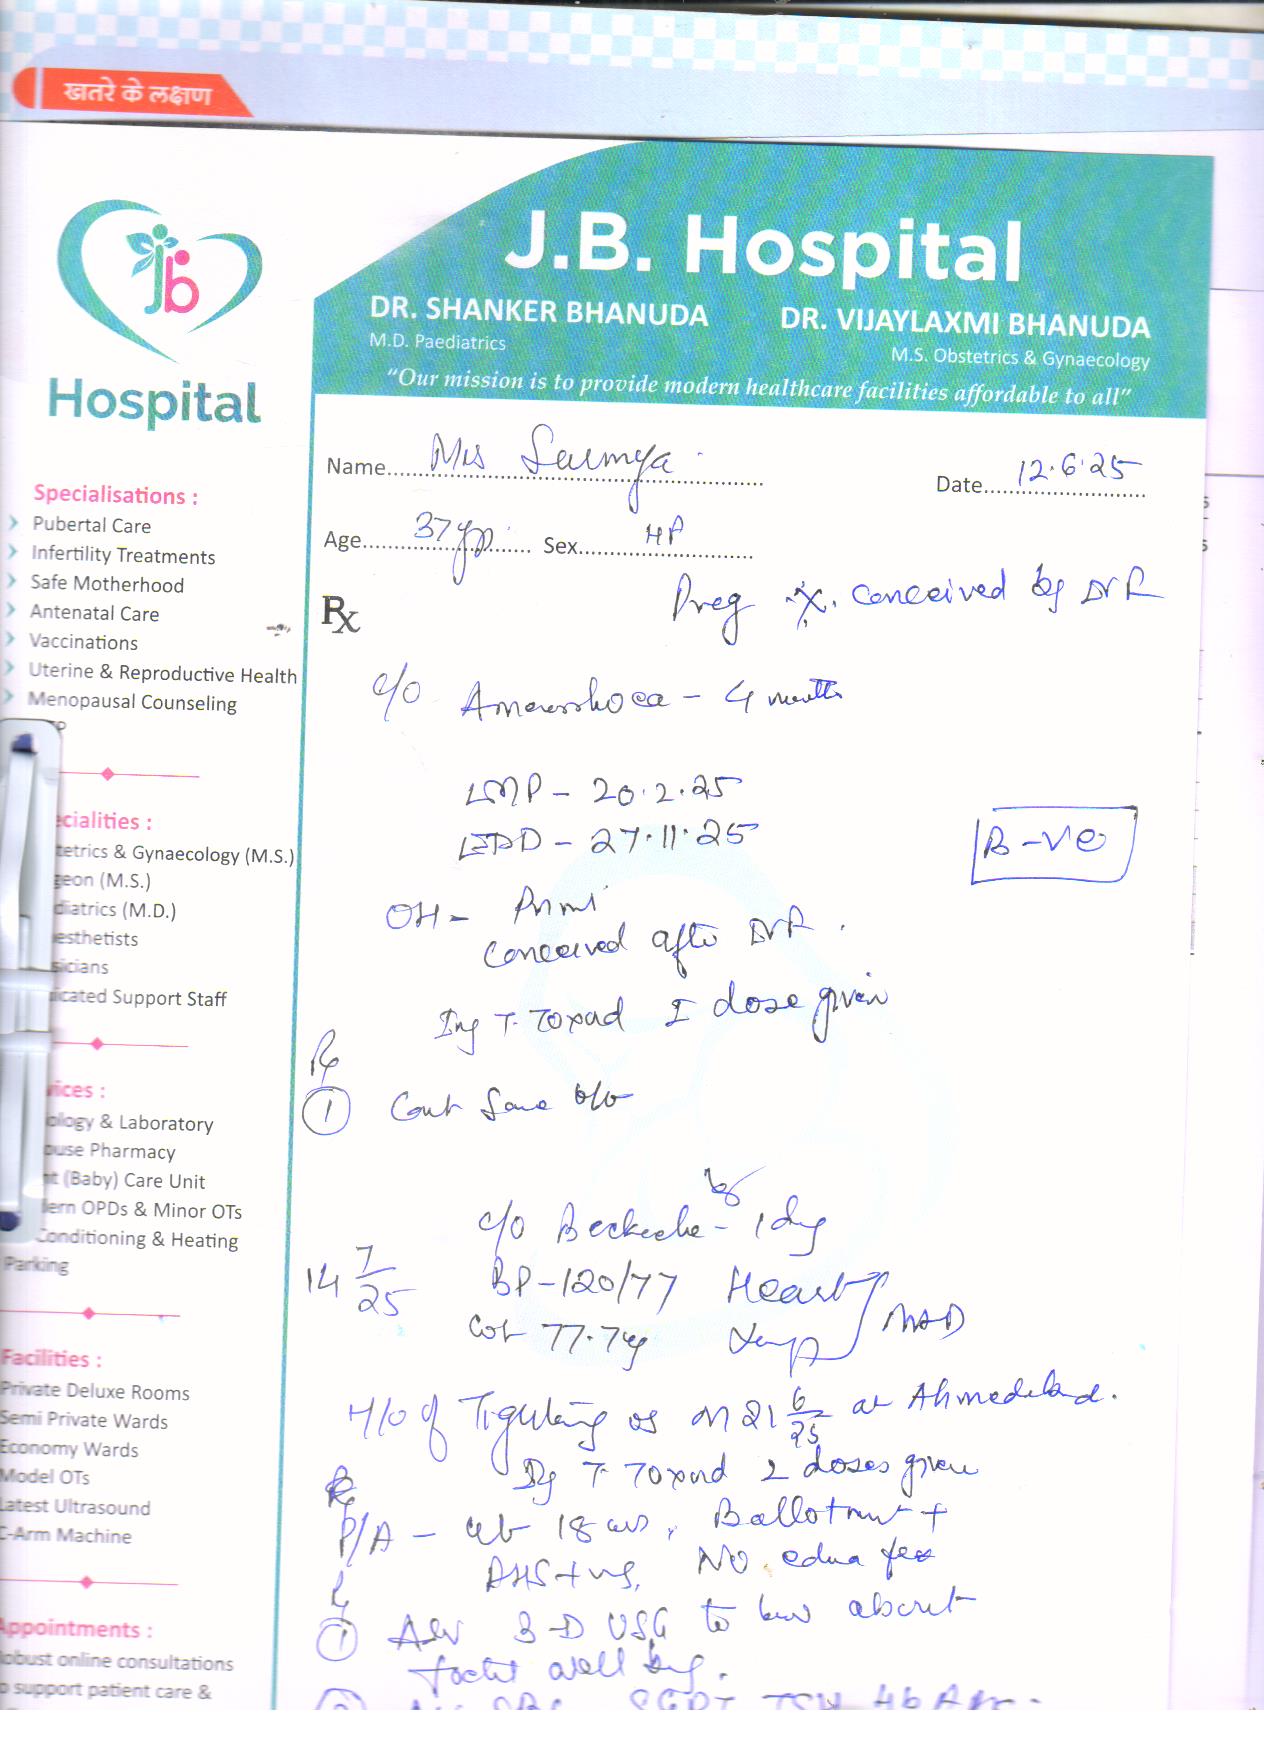 खतरे के लक्षण
J.B. Hospital
DR. SHANKER BHANUDA
M.D. Paediatrics
DR. VIJAYLAXMI BHANUDA
M.S. Obstetrics & Gynaecology
"Our mission is to provide modern healthcare facilities affordable to all"
jb
Hospital
Specialisations :
Pubertal Care
Infertility Treatments
Safe Motherhood
Antenatal Care
Vaccinations
Uterine & Reproductive Health
Menopausal Counseling
cialities :
tetrics & Gynaecology (M.S.)
geon (M.S.)
diatrics (M.D.)
esthetists
sicians
icated Support Staff
ices :
ology & Laboratory
ouse Pharmacy
it (Baby) Care Unit
ern OPDs & Minor OTs
Conditioning & Heating
Parking
Facilities :
Private Deluxe Rooms
Semi Private Wards
Economy Wards
Model OTs
Latest Ultrasound
C-Arm Machine
Appointments :
Robust online consultations
o support patient care &
Name Mrs Saumya
Date 12.6.25
Age 37 yr Sex
Rx
Preg conceived by
c/o - 4 month
LMP - 20.2.25
EDD - 27.11.25
B -ve
OH - Primi
Conceived after
Inj T. Toxoid I dose given
Rx
1 Cont same
c/o Backache - 1 day
14 7/25
BP - 120/77 Heart
Wt 77.7 kg NAD
H/o of on 21 6/25 at Ahmedabad.
Inj T. Toxoid 2 doses given
P/A - 18 wks, Ballotment +
FHS + NO edema feet
1 Adv 3-D USG to know about
foetal well being.
SGPT TSH